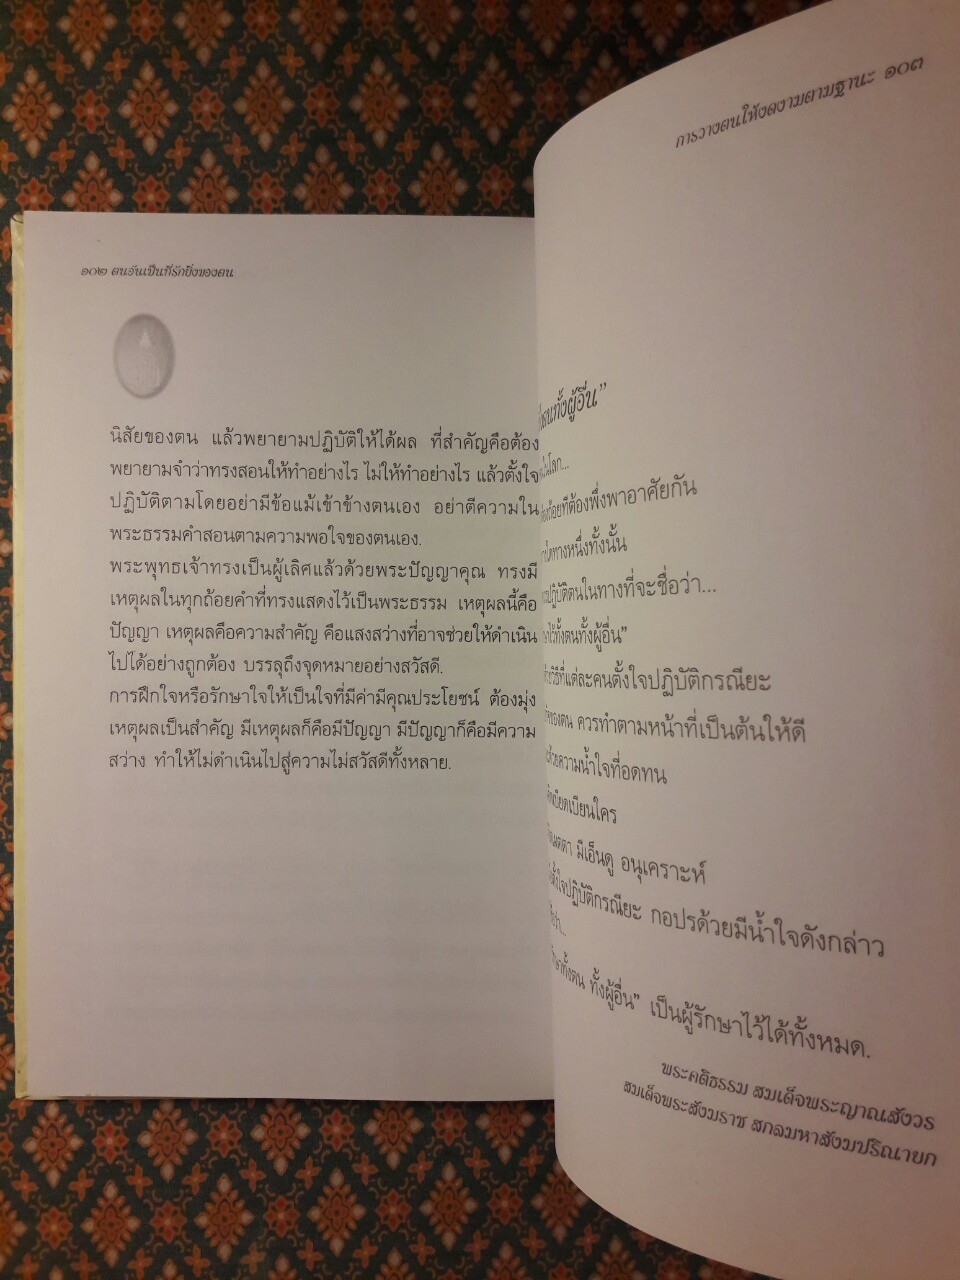 ๑๐๒ ตนอันเป็นที่รักยิ่งของตน
นิสัยของตน แล้วพยายามปฏิบัติให้ได้ผล ที่สำคัญคือต้อง
พยายามจำว่าทรงสอนให้ทำอย่างไร ไม่ให้ทำอย่างไร แล้วตั้งใจ
ปฏิบัติตามโดยอย่ามีข้อแม้เข้าข้างตนเอง อย่าตีความใน
พระธรรมคำสอนตามความพอใจของตนเอง.
พระพุทธเจ้าทรงเป็นผู้เลิศแล้วด้วยพระปัญญาคุณ ทรงมี
เหตุผลในทุกถ้อยคำที่ทรงแสดงไว้เป็นพระธรรม เหตุผลนี้คือ
ปัญญา เหตุผลคือความสำคัญ คือแสงสว่างที่อาจช่วยให้ดำเนิน
ไปได้อย่างถูกต้อง บรรลุถึงจุดหมายอย่างสวัสดี.
การฝึกใจหรือรักษาใจให้เป็นใจที่มีค่ามีคุณประโยชน์ ต้องมุ่ง
เหตุผลเป็นสำคัญ มีเหตุผลก็คือมีปัญญา มีปัญญาก็คือมีความ
สว่าง ทำให้ไม่ดำเนินไปสู่ความไม่สวัสดีทั้งหลาย.
การวางตนให้งดงามตามฐานะ ๑๐๓
ตนทั้งผู้อื่น”
ในโลก...
ที่ต้องพึ่งพาอาศัยกัน
ทางหนึ่งทั้งนั้น
ปฏิบัติตนในทางที่จะชื่อว่า...
ไว้ทั้งตนทั้งผู้อื่น”
วิธีที่แต่ละคนตั้งใจปฏิบัติกรณียะ
ของตน ควรทำตามหน้าที่เป็นต้นให้ดี
ด้วยความน้ำใจที่อดทน
เบียดเบียนใคร
เมตตา มีเอ็นดู อนุเคราะห์
ตั้งใจปฏิบัติกรณียะ กอปรด้วยมีน้ำใจดังกล่าว
ว่า...
รักษาทั้งตน ทั้งผู้อื่น” เป็นผู้รักษาไว้ได้ทั้งหมด.
พระคติธรรม สมเด็จพระญาณสังวร
สมเด็จพระสังฆราช สกลมหาสังฆปริณายก